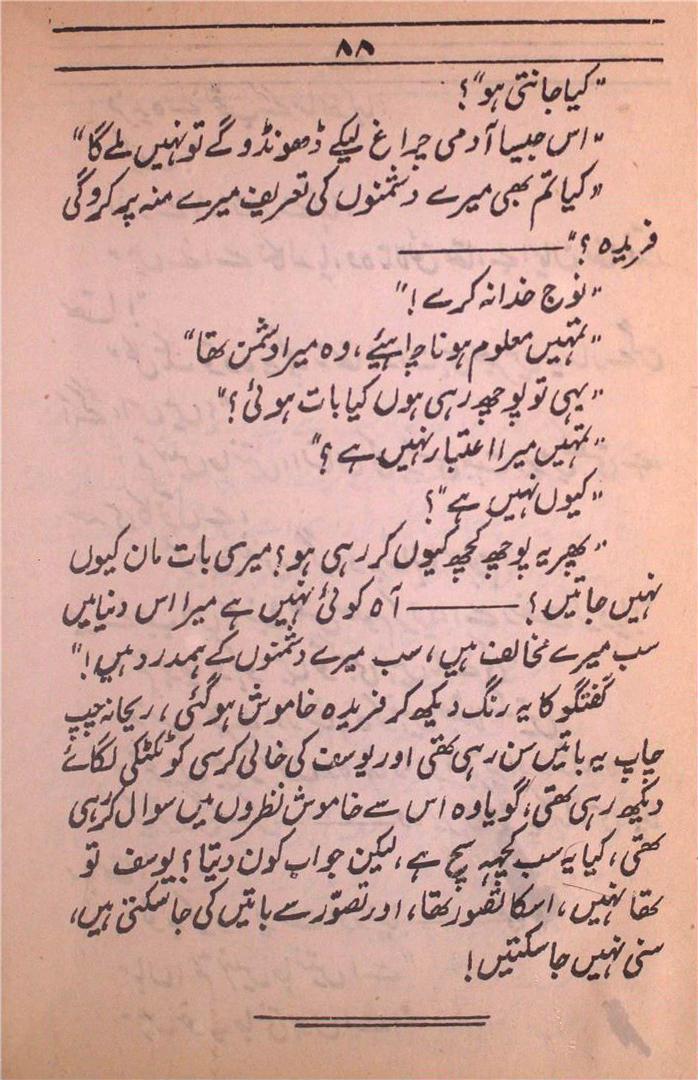 ۸۸
"کیا جانتی ہو"؟
"اس جیسا آدمی چراغ لیکے ڈھونڈو گے تو نہیں ملے گا"
"کیا تم بھی میرے دشمنوں کی تعریف میرے منہ پر کروگی
فریدہ؟"————
"نوج خدا نہ کرے!"
"تمہیں معلوم ہونا چاہیئے، وہ میرا دشمن تھا"
"یہی تو پوچھ رہی ہوں کیا بات ہوئی؟"
"تمہیں میرا اعتبار نہیں ہے؟"
"کیوں نہیں ہے"؟
"پھر یہ پوچھ کچھ کیوں کر رہی ہو؟ میری بات مان کیوں
نہیں جاتیں؟———— آہ کوئی نہیں ہے میرا اس دنیا میں
سب میرے مخالف ہیں، سب میرے دشمنوں کے ہمدرد ہیں!"
گفتگو کا یہ رنگ دیکھ کر فریدہ خاموش ہو گئی، ریحانہ چپ
چاپ یہ باتیں سن رہی تھی اور یوسف کی خالی کرسی کو ٹکٹکی لگائے
دیکھ رہی تھی، گویا وہ اس سے خاموش نظروں میں سوال کر رہی
تھی، کیا یہ سب کچھہ سچ ہے، لیکن جواب کون دیتا؟ یوسف تو
تھا نہیں، اسکا تصور تھا، اور تصوّر سے باتیں کی جا سکتی ہیں،
سنی نہیں جا سکتیں!